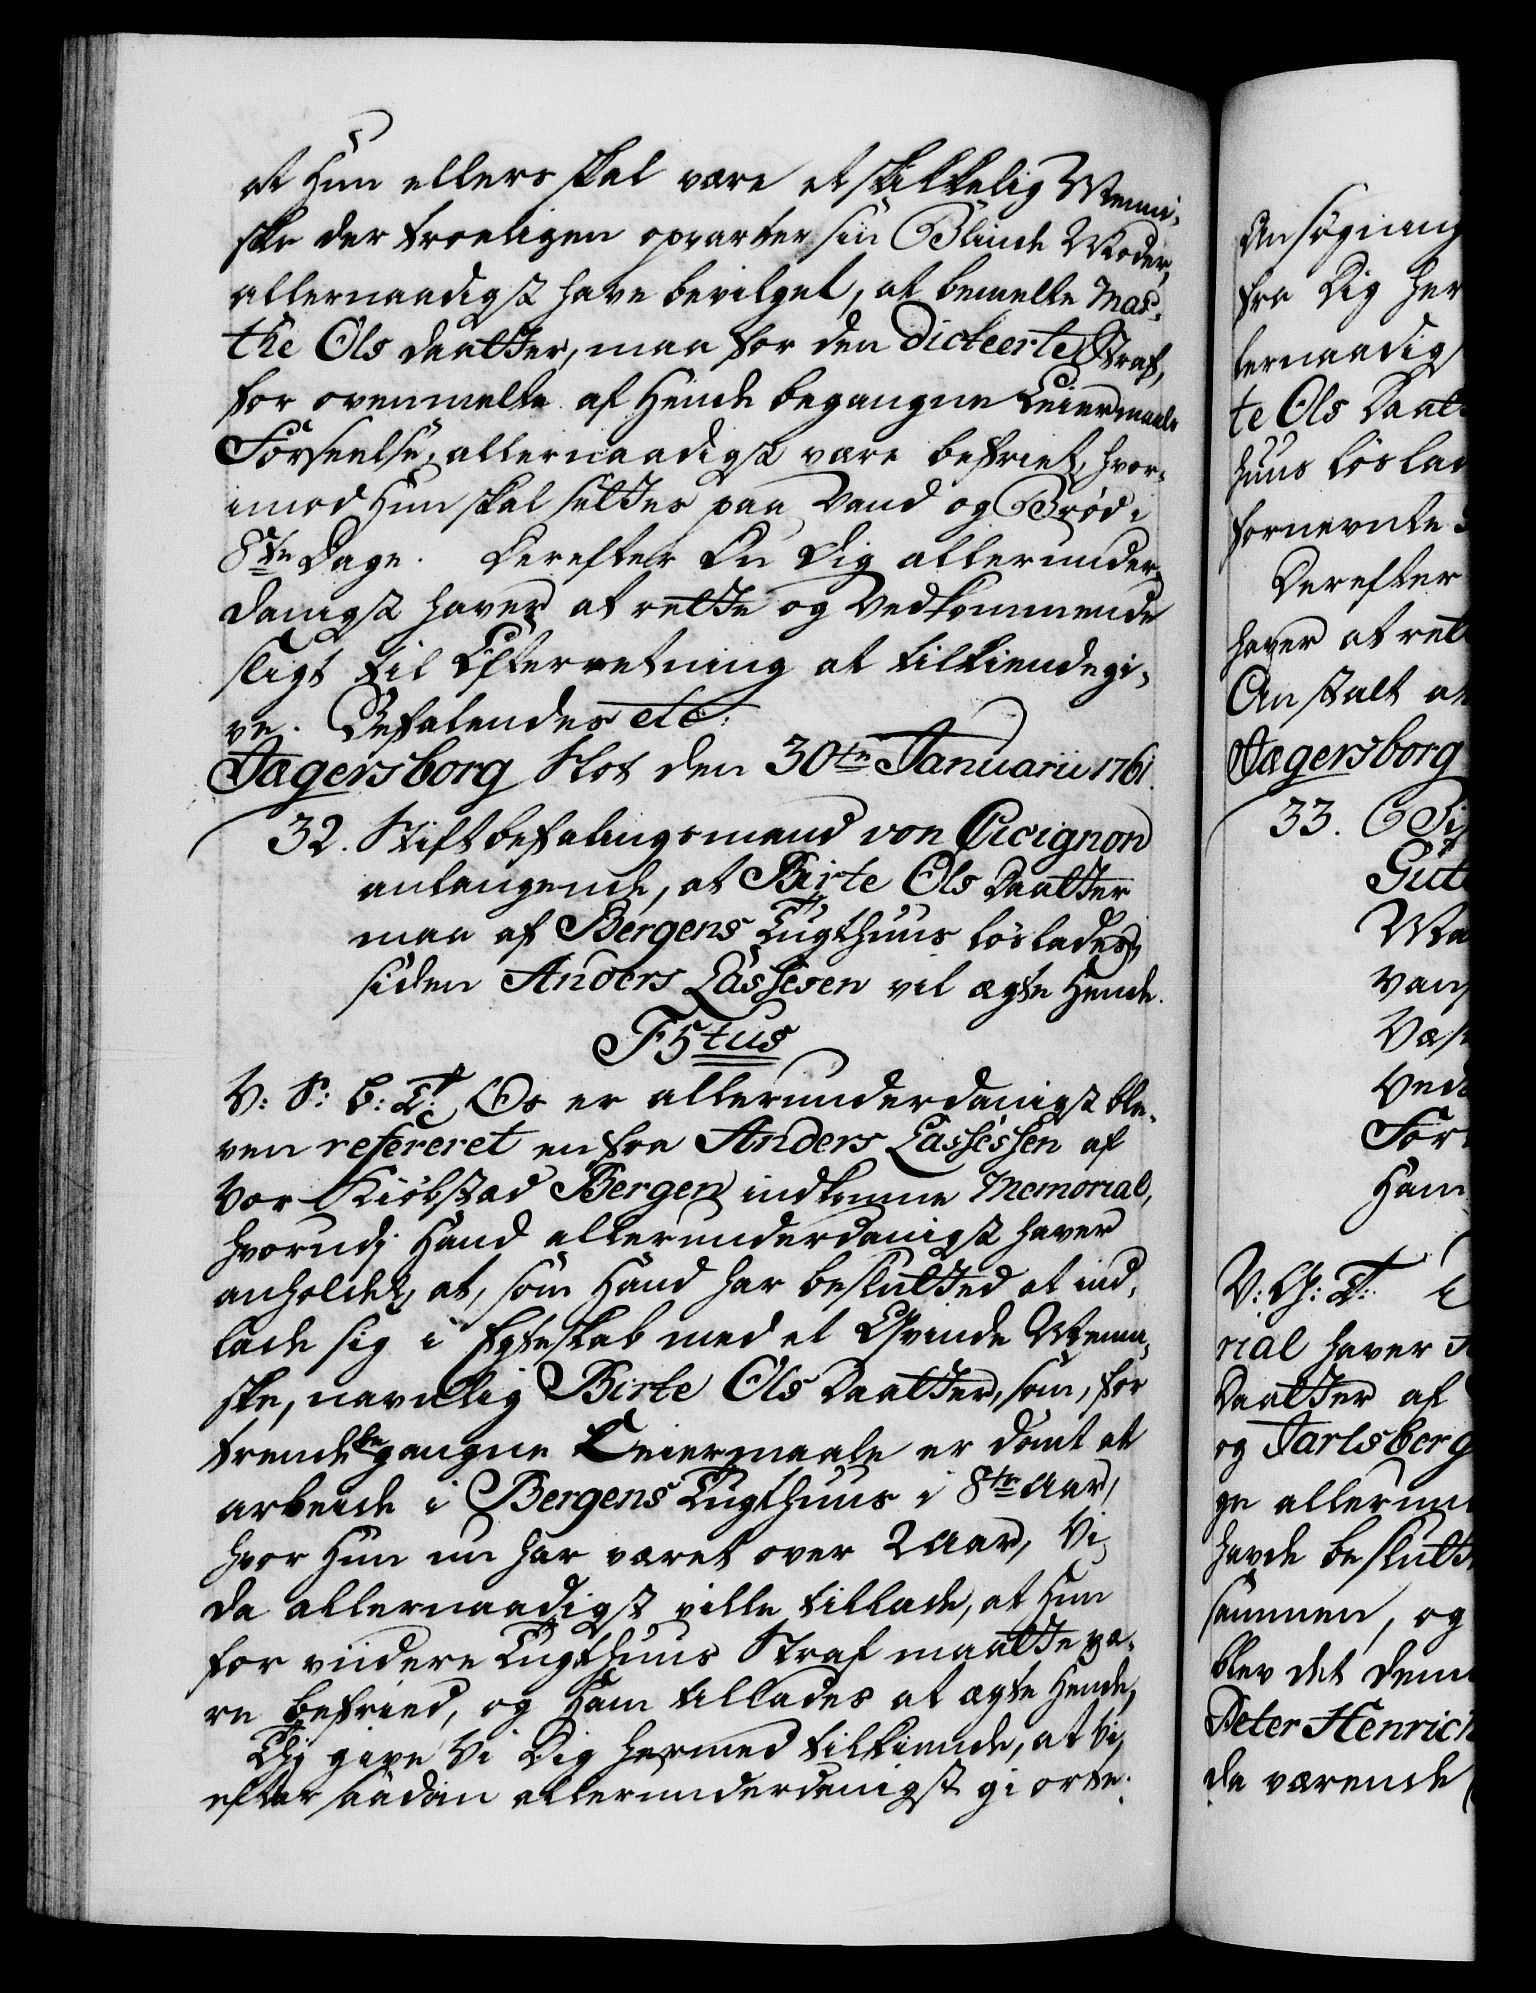 at Hun ellers skal være et skikkelig Menni-
ske der troeligen opvarter sin Blinde Moder,
allernaadigst have bevilget, at bemelte Mar-
the Ols Daatter, maa for den dicteerte Straf,
for ovenmelte af Hende begangne Leiermaals
Forseelse, allernaadigst være befriet, hvor-
imod Hun skal sættes paa Vand og Brød i
8te Dage. Derefter Du Dig allerunder-
danigst haver at rette og Vedkommende
sligt til Efterretning at tilkiendegi-
ve. Befalendes etc:
Jægersborg Slot den 30te Januarii 1761.
32. Stiftbefalingsmand von Cicignon
anlangende, at Birte Ols Daatter
maa af Bergens Tugthuus løslades,
siden Anders Lassesen vil ægte Hende.
F5tus
V: S: G: T: Os er allerunderdanigst ble-
ven refereret en fra Anders Lassessen af
Vor Kiøbstad Bergen indkomne Memorial,
hvorudj Hand allerunderdanigst haver
anholdet, at, som Hand har beslutted at ind-
lade sig i Egteskab med et Qvinde Menni-
ske, navnlig Birte Ols Daatter, som, for
trende begangne Leiermaale er dømt at
arbeide i Bergens Tugthuus i 8te Aar,
hvor Hun nu har været over 2 Aar, Vi
da allernaadigst ville tillade, at Hun
for viidere Tugthuus Straf maatte væ-
re befried, og Ham tillades at ægte Hende,
Thj give Vi Dig hermed tilkiende, at Vi,
efter saadan allerunderdanigst giorte
Ansøgning
fra Dig her
lernaadig
te Ols Daat
huus løslad
fornevnte
Derefter
haver at ret
Anstalt at
Jægersborg
33.
Gut
Ma
Van
Væs
Ved
For
Ham
V: G: T:
rial haver
Daatter af
og Jarlsberg
ge allerun
havde beslutt
sammen, og
blev det dem
Peter Henrich
da værende